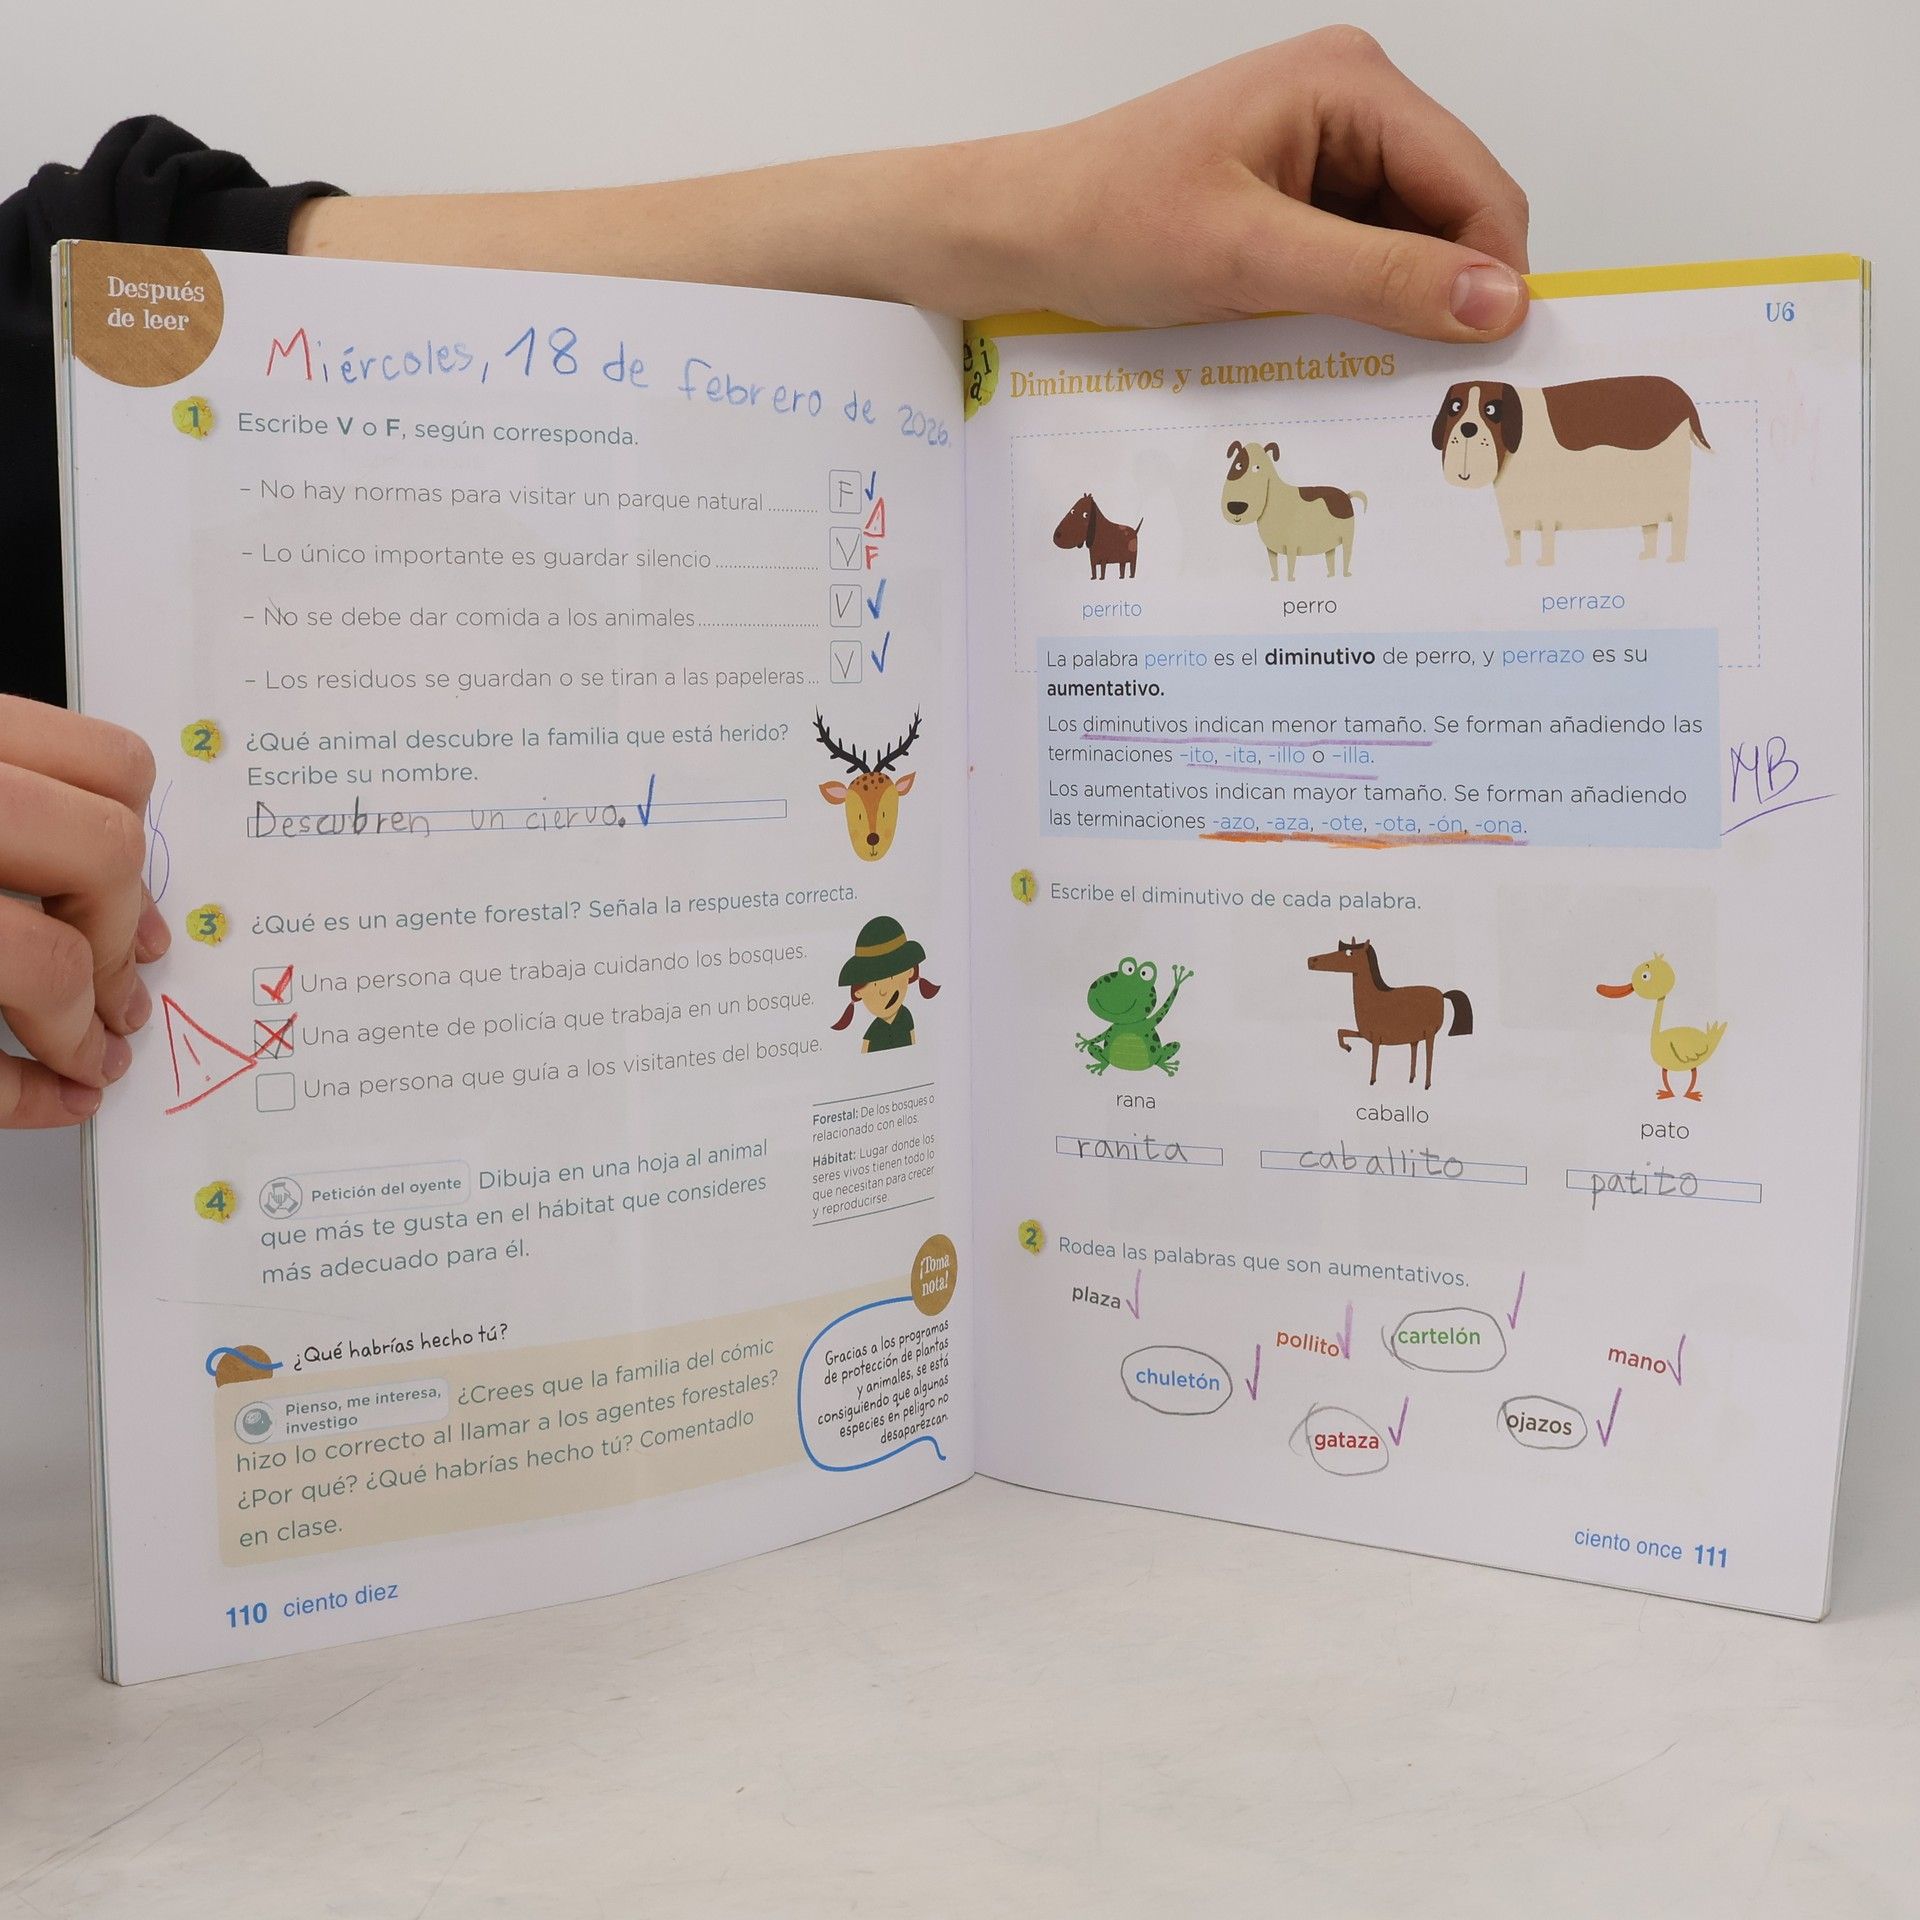 Después
de leer
Miércoles, 18 de febrero de 2026.
1 Escribe V o F, según corresponda.
– No hay normas para visitar un parque natural ............ F
– Lo único importante es guardar silencio ....................... V F
– No se debe dar comida a los animales........................... V
– Los residuos se guardan o se tiran a las papeleras... V
2 ¿Qué animal descubre la familia que está herido?
Escribe su nombre.
Descubren un ciervo.
3 ¿Qué es un agente forestal? Señala la respuesta correcta.
Una persona que trabaja cuidando los bosques.
Una agente de policía que trabaja en un bosque.
!
Una persona que guía a los visitantes del bosque.
Forestal: De los bosques o
relacionado con ellos.
Hábitat: Lugar donde los
seres vivos tienen todo lo
que necesitan para crecer
y reproducirse.
4 Petición del oyente Dibuja en una hoja al animal
que más te gusta en el hábitat que consideres
más adecuado para él.
¡Toma
nota!
Gracias a los programas
de protección de plantas
y animales, se está
consiguiendo que algunas
especies en peligro no
desaparezcan.
¿Qué habrías hecho tú?
Pienso, me interesa,
investigo
¿Crees que la familia del cómic
hizo lo correcto al llamar a los agentes forestales?
¿Por qué? ¿Qué habrías hecho tú? Comentadlo
en clase.
110 ciento diez
U6
Diminutivos y aumentativos
perrito perro perrazo
La palabra perrito es el diminutivo de perro, y perrazo es su
aumentativo.
Los diminutivos indican menor tamaño. Se forman añadiendo las
terminaciones -ito, -ita, -illo o -illa.
Los aumentativos indican mayor tamaño. Se forman añadiendo
las terminaciones -azo, -aza, -ote, -ota, -ón, -ona.
MB
1 Escribe el diminutivo de cada palabra.
rana caballo pato
ranita caballito patito
2 Rodea las palabras que son aumentativos.
plaza pollito cartelón mano
chuletón gataza ojazos
ciento once 111